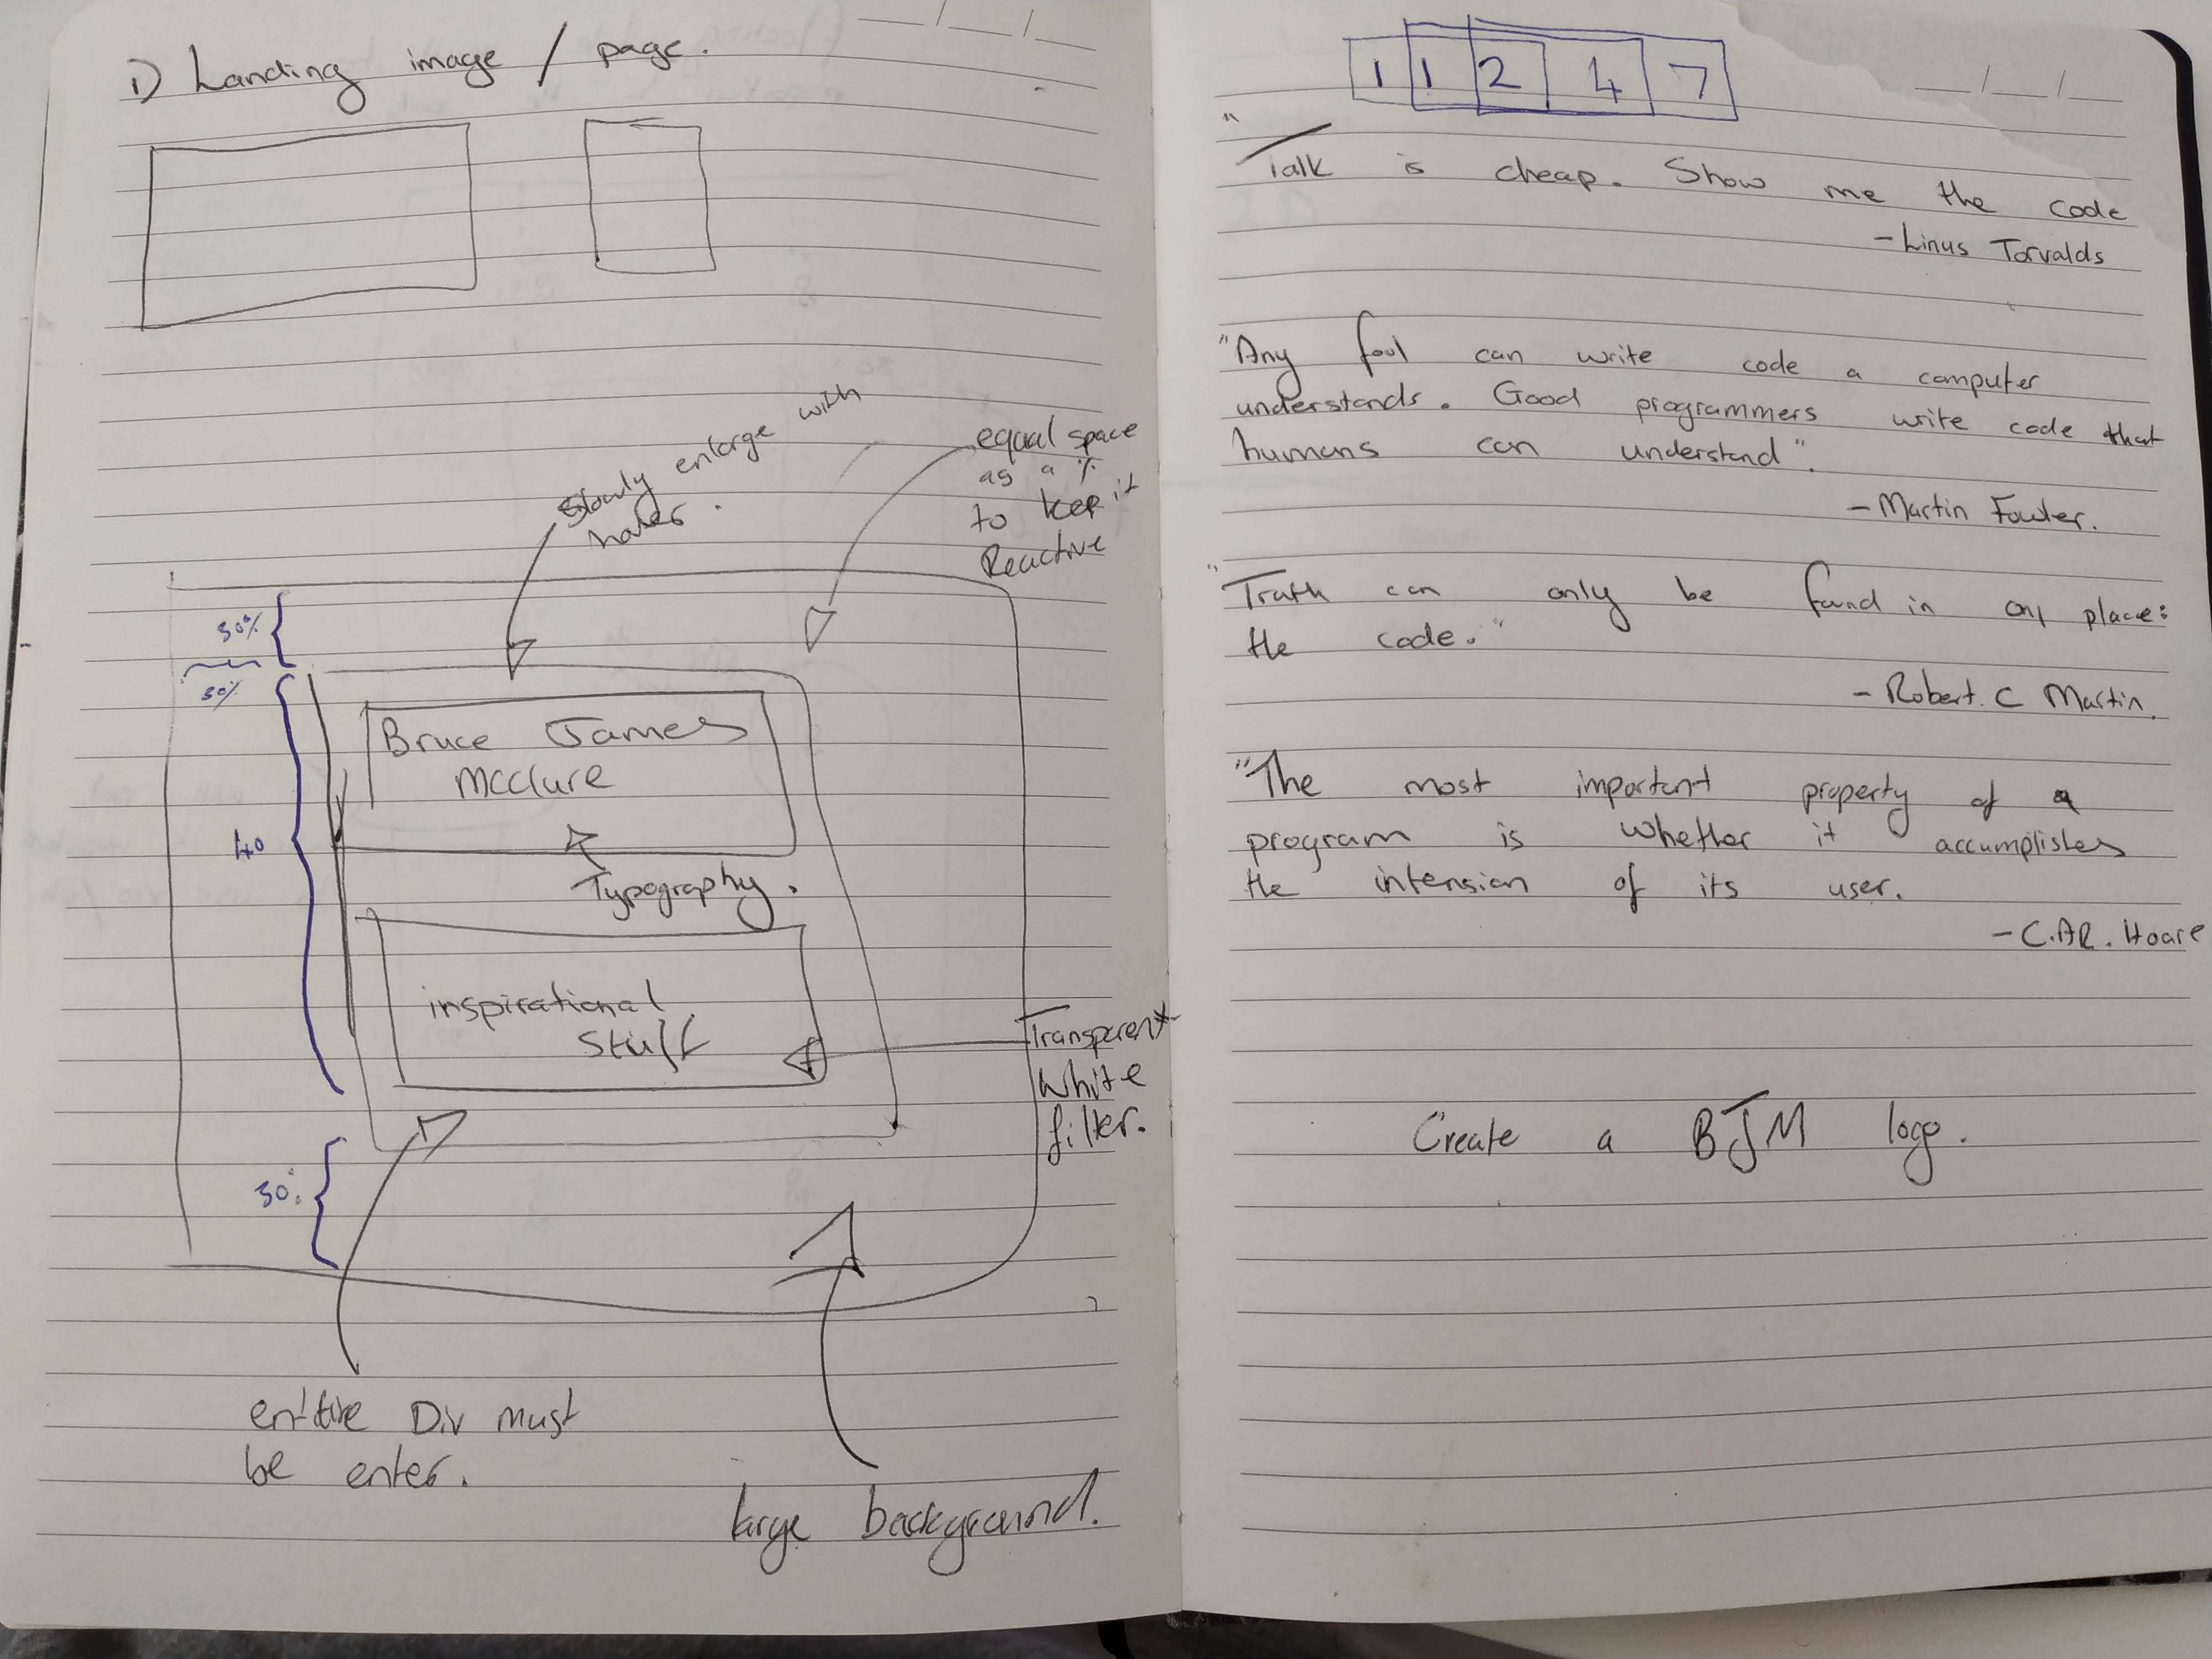 1) Landing image / page.
slowly enlarge with
hover.
equal space
as a %
to keep it
Reactive
30%
30%
Bruce James
McClure
40
Typography.
inspirational
Stuff
Transparent
White
filter.
30%
entire Div must
be enter.
large background.
1 1 2 4 7
"Talk is cheap. Show me the code
- Linus Torvalds
"Any fool can write code a computer
understands. Good programmers write code that
humans can understand".
- Martin Fowler.
"Truth can only be found in one place:
the code."
- Robert. C Martin.
"The most important property of a
program is whether it accumplishes
the intension of its user.
- C.A.R. Hoare
Create a BJM logo.